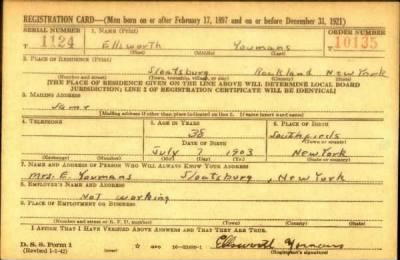 REGISTRATION CARD—(Men born on or after February 17, 1897 and on or before December 31, 1921)
SERIAL NUMBER 1. NAME (Print) ORDER NUMBER
T 1124 Ellsworth Youmans 10135
(First) (Middle) (Last)
2. PLACE OF RESIDENCE (Print)
Sloatsburg Rockland New York
(Number and street) (Town, township, village, or city) (County) (State)
[THE PLACE OF RESIDENCE GIVEN ON THE LINE ABOVE WILL DETERMINE LOCAL BOARD
JURISDICTION; LINE 2 OF REGISTRATION CERTIFICATE WILL BE IDENTICAL]
3. MAILING ADDRESS
Same
[Mailing address if other than place indicated on line 2. If same insert word same]
4. TELEPHONE 5. AGE IN YEARS 6. PLACE OF BIRTH
38 Southfields
DATE OF BIRTH (Town or county)
July 7 1903 New York
(Exchange) (Number) (Mo.) (Day) (Yr.) (State or country)
7. NAME AND ADDRESS OF PERSON WHO WILL ALWAYS KNOW YOUR ADDRESS
Mrs. E. Youmans Sloatsburg New York
8. EMPLOYER'S NAME AND ADDRESS
Not working
9. PLACE OF EMPLOYMENT OR BUSINESS
(Number and street or R. F. D. number) (Town) (County) (State)
I AFFIRM THAT I HAVE VERIFIED ABOVE ANSWERS AND THAT THEY ARE TRUE.
D. S. S. Form 1
(Revised 1-1-42) (over) GPO Ellsworth Youmans
(Registrant's signature)